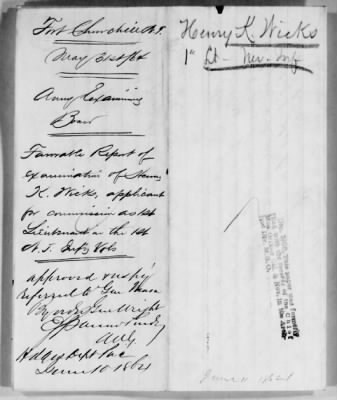 Fort Churchill N.T.
May 31st/64
Army Examining
Board
Favorable Report of
examination of Henry
K. Wicks, applicant
for commission as 1st
Lieutenant in the 1st
N.T. Infy Vols
Approved & resp'y
Referred to Gen Mason
By order Gen Wright
AAG
Hd Qrs Dept Pac
June 10 1864
Henry K. Wicks
1st Lt - Nev. Inf
June 11 1864